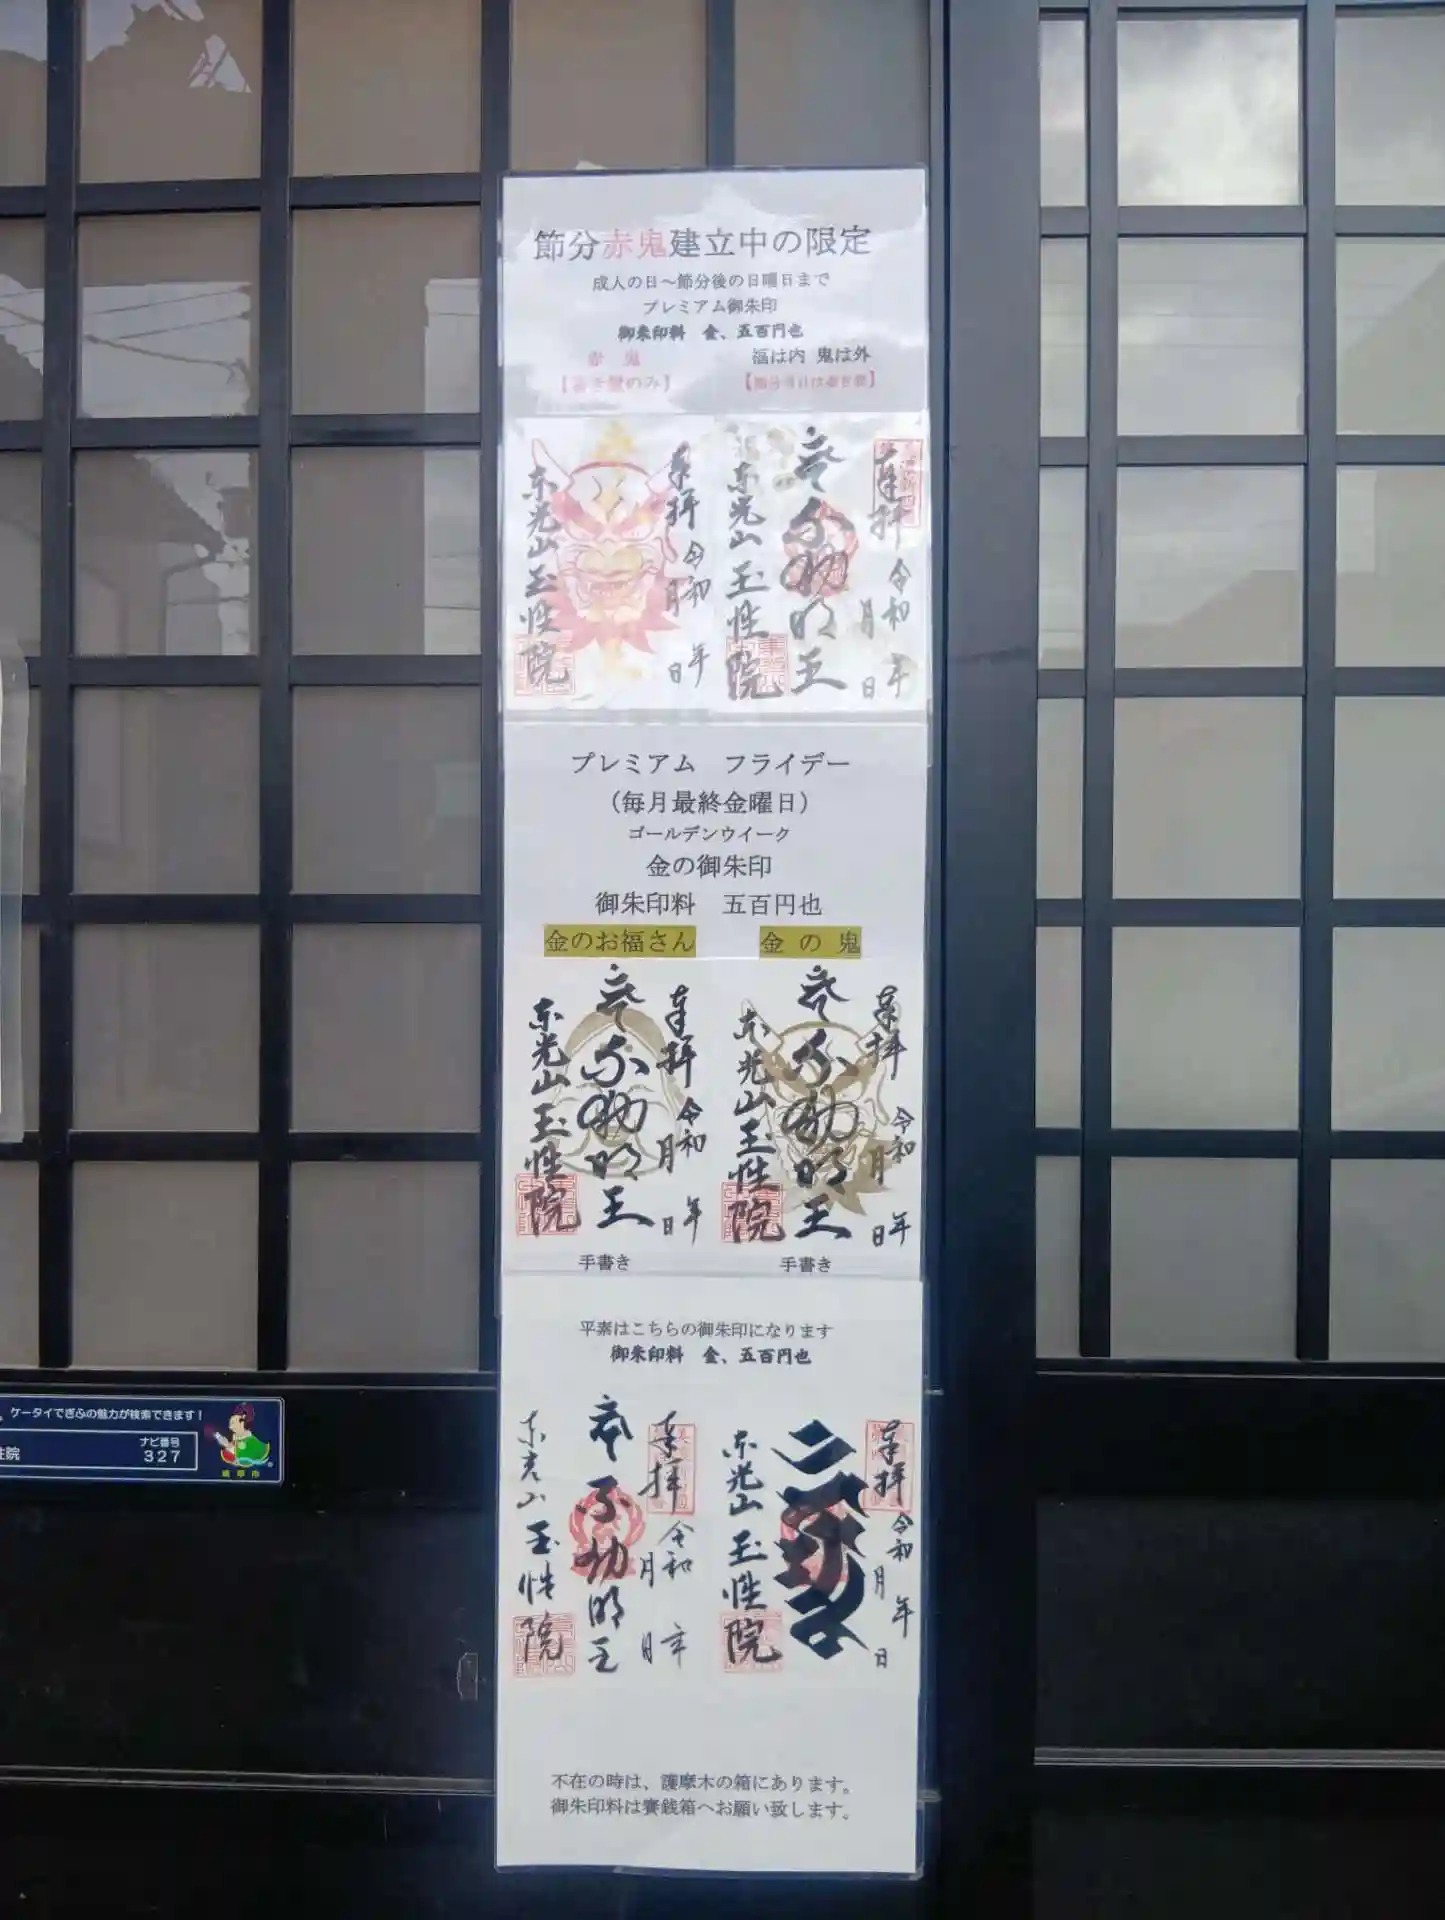 節分赤鬼建立中の限定
成人の日～節分後の日曜日まで
プレミアム御朱印
御朱印料　金、五百円也
赤　鬼
福は内 鬼は外
【書き置のみ】
【節分当日は書き置】
奉拝
令和　年
月　日
東光山玉性院
奉拝
令和　年
月　日
不動明王
東光山玉性院
プレミアム　フライデー
（毎月最終金曜日）
ゴールデンウイーク
金の御朱印
御朱印料　五百円也
金のお福さん
金 の 鬼
奉拝
令和　年
月　日
不動明王
東光山玉性院
奉拝
令和　年
月　日
不動明王
東光山玉性院
手書き
手書き
平素はこちらの御朱印になります
御朱印料　金、五百円也
奉拝
令和　年
月　日
不動明王
東光山玉性院
奉拝
令和　年
月　日
東光山玉性院
不在の時は、護摩木の箱にあります。
御朱印料は賽銭箱へお願い致します。
ケータイでぎふの魅力が検索できます！
性院
ナビ番号
327
岐阜市